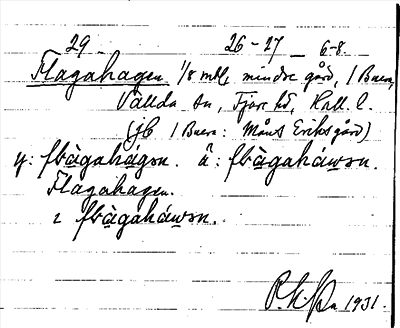 29 26-27 — 6-8.
Flagahagen 1/8 mtl, mindre gård, / Buera,
Vallda sn, Fjäre hd, Hall. l.
(jb / Buera: Månts Eriksgård)
y: fłàgahàgən. ä: fłàgaháwən.
Flagahagen.
2 fłàgaháwən.
1931.